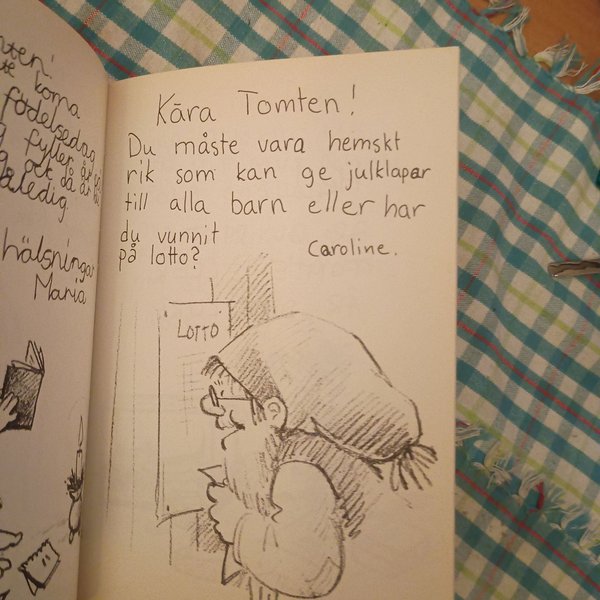 korna
födelsedag
fyller år
och då är
ledig
hälsningar
Maria
Kära Tomten!
Du måste vara hemskt
rik som kan ge julklapar
till alla barn eller har
du vunnit
på lotto?
Caroline.
LOTTO